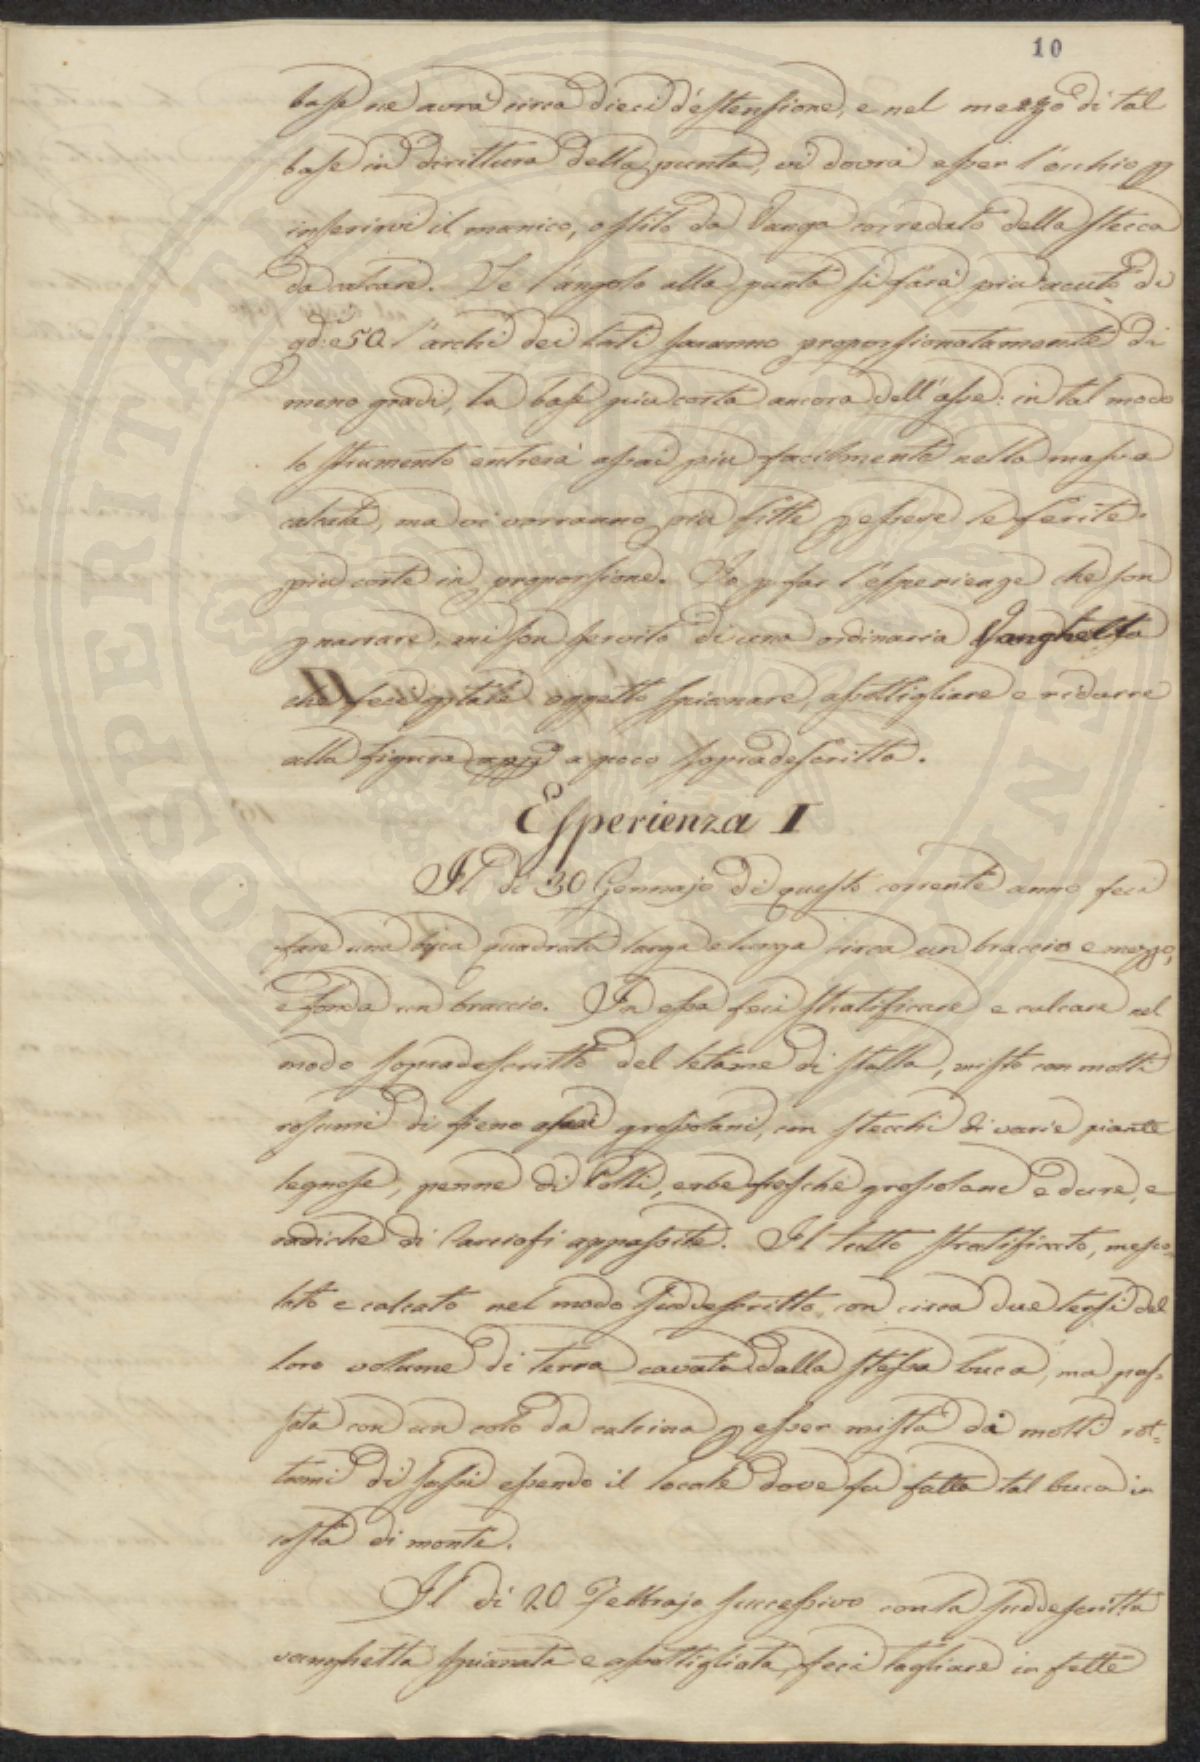 10
base ne avrà circa dieci d'estensione, e nel mezzo di tal
base in dirittura della punta, vi dovrà esser l'occhio p
inserirvi il manico, o stilo da Vanga corredato della stecca
da calcare. Se l'angolo alla punta si farà più acuto di
gdi 50 l'archi dei lati saranno proporzionatamente di
meno gradi, la base più corta ancora dell'asse: in tal modo
lo strumento entrerà assai più facilmente nella massa
calcata, ma vi vorranno più fitte p essere le ferite
più corte in proporsione. Io p far l'esperienze che son
p narrare, mi son servito di una ordinaria Vanghetta
che feci p tale oggetto spianare, assottigliare e ridurre
alla figura app a poco sopradescritta.
Esperienza I
Il dì 30 Gennajo di questo corrente anno feci
fare una buca quadrata larga e lunga circa un braccio e mezzo,
e fonda un braccio. In essa feci stratificare e calcare nel
modo sopradescritto del letame di stalla, misto con molti
rosumi di fieno assai grossolani, con stecchi di varie piante
legnose, penne di Polli, erbe fresche grossolane e dure, e
radiche di Carciofi appassite. Il tutto stratificato, mesco-
lato e calcato nel modo suddescritto, con circa due tersi del
loro volume di terra cavata dalla stessa buca, ma pas-
sata con un colo da calcina p esser mista da molti rot-
tami di sassi essendo il locale dove fu fatta tal buca in
costa di monte.
Il dì 20 Febbrajo successivo con la suddescritta
vanghetta spianata e assottigliata, feci tagliare in fette
PROSPERITATI PUBLICAE